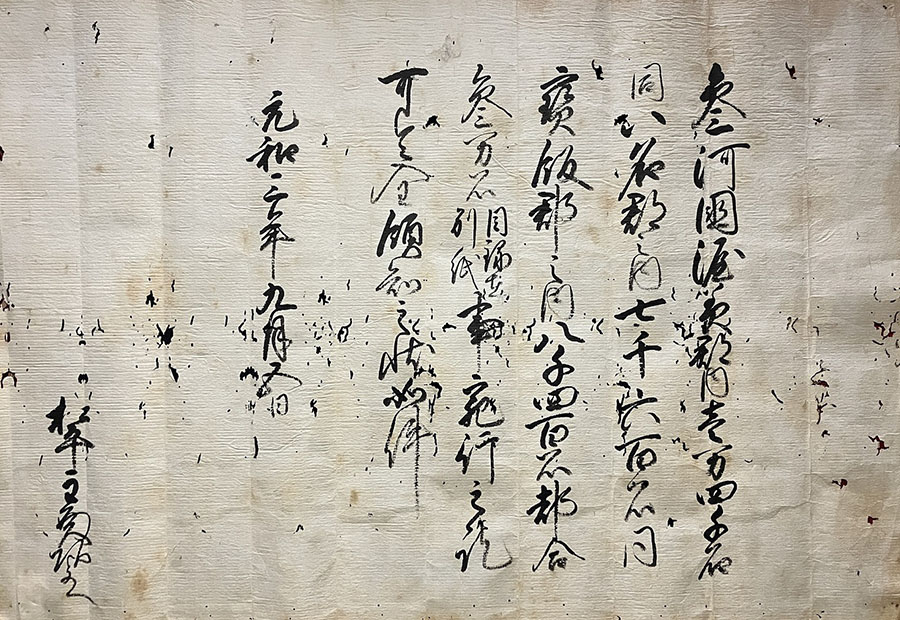 参河國渥美郡内壱万四千石
同八名郡之内七千六百石同
寳飯郡之内八千四百石都合
参万石目録在別紙事宛行之訖
可令全領知之状如件
元和二年九月五日
松平主殿頭